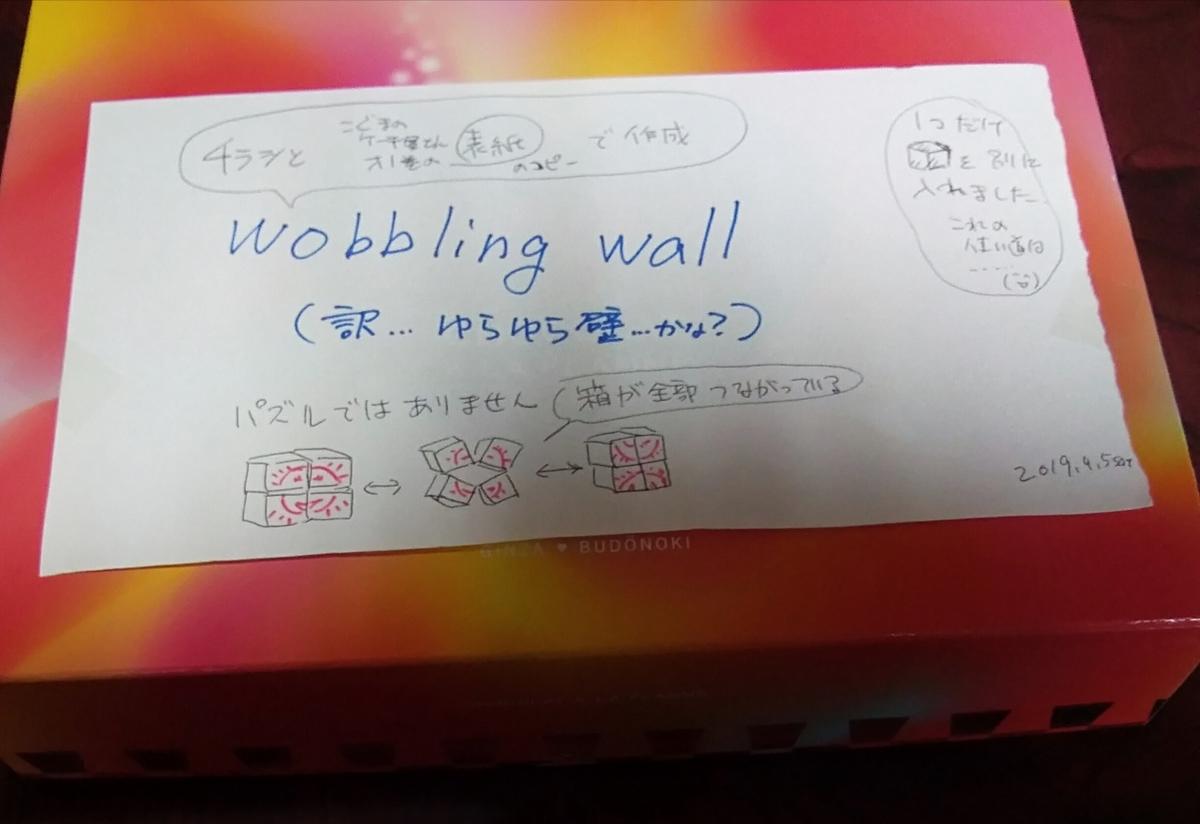 チラシと
こぐまの
ケーキ屋さん
表紙
のコピー
で作成
wobbling wall
(訳... ゆらゆら壁...かな?)
パズルではありません
箱が全部つながっている
1つだけ
を別に
入れました
これの
使い道は
......
2019.4.5
GINZA ♥ BUDŌNOKI